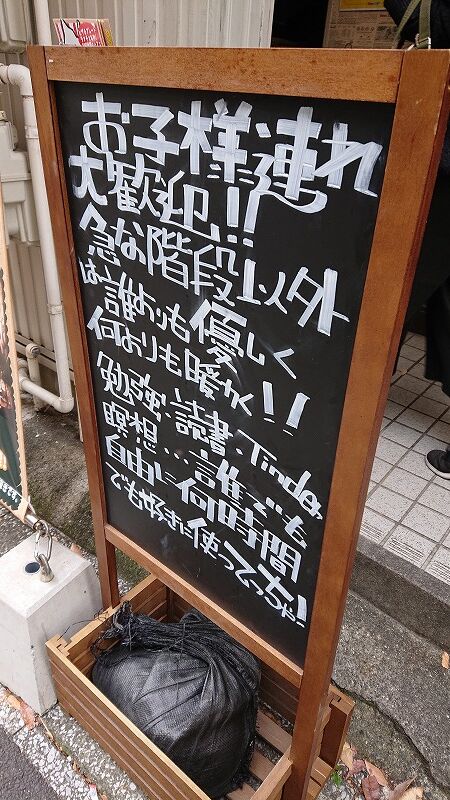 お子様連れ
大歓迎!!
急な階段以外
は誰よりも優しく
何よりも暖かく!!
勉強・読書・Tinder
瞑想・・誰でも
自由に何時間
でも好きに使ってっちゃ!